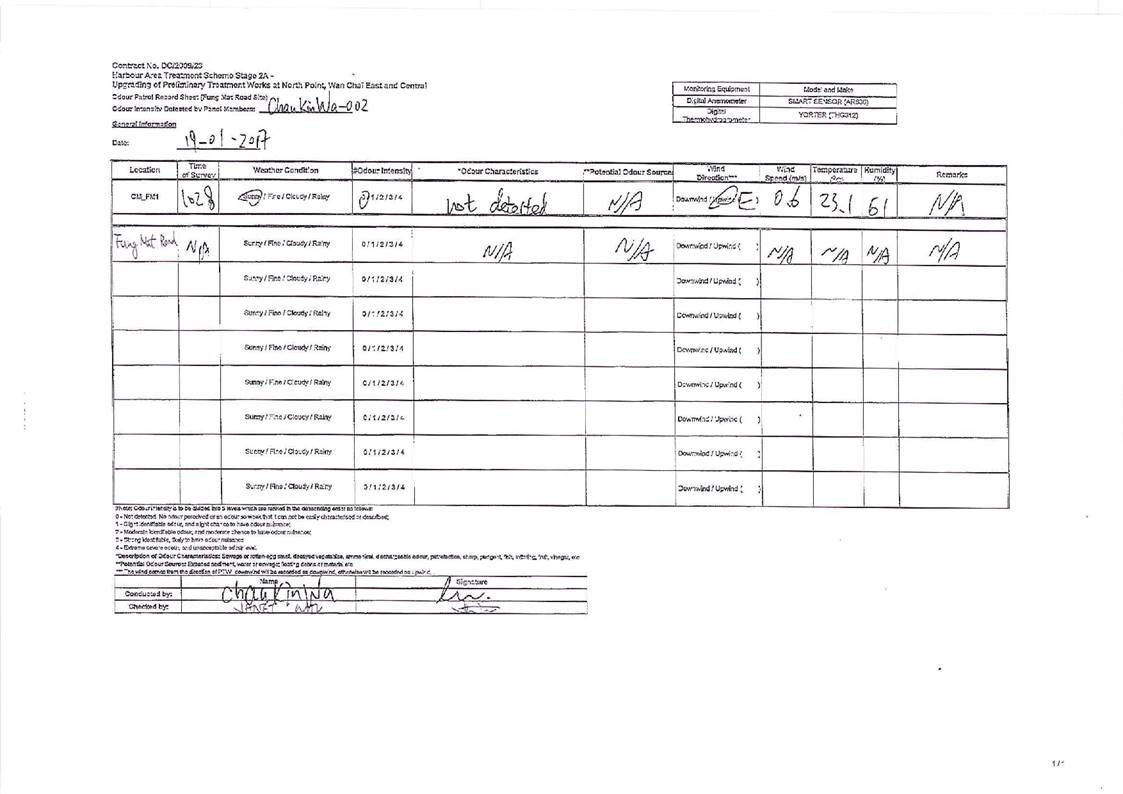 Contract No. DC/2009/23
Harbour Area Treatment Scheme Stage 2A -
Upgrading of Preliminary Treatment Works at North Point, Wan Chai East and Central
Odour Patrol Record Sheet (Fung Mat Road Site)
Odour Intensity Detected by Panel Members: Chau Kin Wa-002
General Information
Date: 19-01-2017
Monitoring Equipment Model and Make
Digital Anemometer SMART SENSOR (AR836)
Digital Thermohydrometer YORTER (THG312)
Location Time of Survey Weather Condition #Odour Intensity *Odour Characteristics **Potential Odour Source Wind Direction*** Wind Speed (m/s) Temperature Humidity (%) Remarks
CM_FM1 1028 Sunny / Fine / Cloudy / Rainy 0/1/2/3/4 not detected N/A Downwind / Upwind (E) 0.6 23.1 61 N/A
Fung Mat Road N/A Sunny / Fine / Cloudy / Rainy 0/1/2/3/4 N/A N/A Downwind / Upwind ( ) N/A N/A N/A N/A
Sunny / Fine / Cloudy / Rainy 0/1/2/3/4 Downwind / Upwind ( )
Sunny / Fine / Cloudy / Rainy 0/1/2/3/4 Downwind / Upwind ( )
Sunny / Fine / Cloudy / Rainy 0/1/2/3/4 Downwind / Upwind ( )
Sunny / Fine / Cloudy / Rainy 0/1/2/3/4 Downwind / Upwind ( )
Sunny / Fine / Cloudy / Rainy 0/1/2/3/4 Downwind / Upwind ( )
Sunny / Fine / Cloudy / Rainy 0/1/2/3/4 Downwind / Upwind ( )
Sunny / Fine / Cloudy / Rainy 0/1/2/3/4 Downwind / Upwind ( )
#Note: Odour intensity is to be divided into 5 levels which are ranked in the descending order as follows:
0 - Not detected. No odour perceived or an odour so weak that it can not be easily characterised or described;
1 - Slight identifiable odour, and slight chance to have odour nuisance;
2 - Moderate identifiable odour, and moderate chance to have odour nuisance;
3 - Strong identifiable, likely to have odour nuisance
4 - Extreme severe odour, and unacceptable odour level.
*Description of Odour Characteristics: Sewage or rotten egg smell, decayed vegetables, ammonical, dischargeable odour, putrefaction, sharp, pungent, fish, irritating, fruit, vinegar, etc
**Potential Odour Source: Exposed sediment, water or sewage; floating debris or material etc
*** The wind comes from the direction of PTW, downwind will be recorded as downwind, otherwise will be recorded as upwind.
Name Signature
Conducted by: Chau Kin Wa
Checked by: JANET
1/1